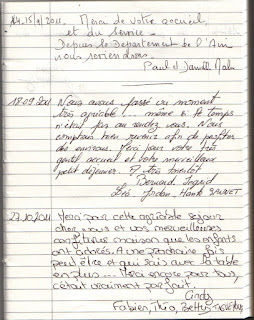 14-15/9/2011, Merci de votre accueil
et du service -
Depuis le Departement de l'Ain
nous reviendrons
Paul et
18.09.2011 Nous avons passé un moment
très agréable... même si le temps
n'était pas au rendez vous. Nous
comptons bien revenir afin de profiter
des environs. Merci pour votre très
gentil accueil et votre merveilleux
petit déjeuner. A très bientôt
Bernard, Ingrid
Jordan,
27.10.2011 Merci pour cette agréable séjour
chez vous et vos merveilleuses
confitures maison que les enfants
ont adorés. A une prochaine fois
peut être et qui sais avec la table
en plus... Merci encore pour tous,
c'était vraiment parfait.
Cindy,
Fabien, Théo,